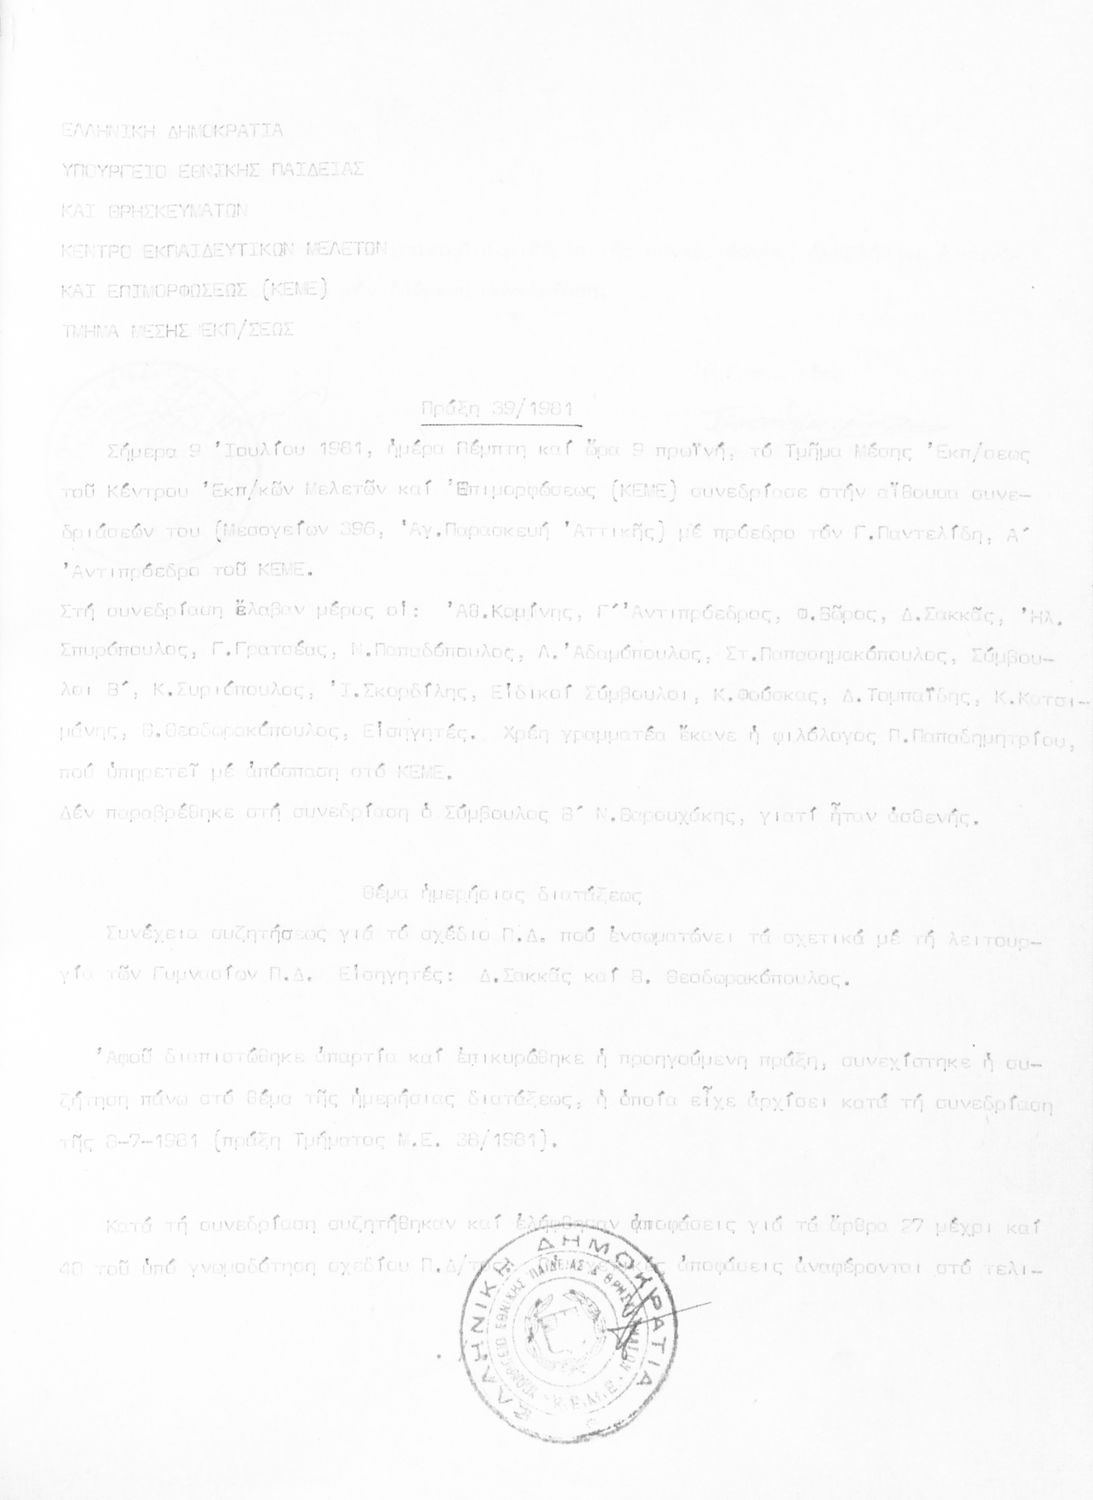 ΕΛΛΗΝΙΚΗ ΔΗΜΟΚΡΑΤΙΑ
ΥΠΟΥΡΓΕΙΟ ΕΘΝΙΚΗΣ ΠΑΙΔΕΙΑΣ
ΚΑΙ ΘΡΗΣΚΕΥΜΑΤΩΝ
ΚΕΝΤΡΟ ΕΚΠΑΙΔΕΥΤΙΚΩΝ ΜΕΛΕΤΩΝ
ΚΑΙ ΕΠΙΜΟΡΦΩΣΕΩΣ (ΚΕΜΕ)
ΤΜΗΜΑ ΜΕΣΗΣ ΕΚΠ/ΣΕΩΣ
Πράξη 39/1981
Σήμερα 9 Ἰουλίου 1981, ἡμέρα Πέμπτη καί ὥρα 9 πρωϊνή, τό Τμῆμα Μέσης Ἐκπ/σεως
τοῦ Κέντρου Ἐκπ/κῶν Μελετῶν καί Ἐπιμορφώσεως (ΚΕΜΕ) συνεδρίασε στήν αἴθουσα συνε-
δριάσεών του (Μεσογείων 396, Ἁγ.Παρασκευή Ἀττικῆς) μέ πρόεδρο τόν Γ.Παντελίδη, Α΄
Ἀντιπρόεδρο τοῦ ΚΕΜΕ.
Στή συνεδρίαση ἔλαβαν μέρος οἱ: Ἀθ.Κομίνης, Γ΄ Ἀντιπρόεδρος, Φ.Βῶρος, Δ.Σακκᾶς, Ἠλ.
Σπυρόπουλος, Γ.Γρατσέας, Ν.Παπαδόπουλος, Λ.Ἀδαμόπουλος, Στ.Παπασημακόπουλος, Σύμβου-
λοι Β΄, Κ.Συριόπουλος, Ἰ.Σκορδίλης, Εἰδικοί Σύμβουλοι, Κ.Φούσκας, Δ.Τομπαΐδης, Κ.Κατσι-
μάνης, Β.Θεοδωρακόπουλος, Εἰσηγητές. Χρέη γραμματέα ἔκανε ἡ φιλόλογος Π.Παπαδημητρίου,
πού ὑπηρετεῖ μέ ἀπόσπαση στό ΚΕΜΕ.
Δέν παραβρέθηκε στή συνεδρίαση ὁ Σύμβουλος Β΄ Ν.Βαρουχάκης, γιατί ἦταν ἀσθενής.
Θέμα ἡμερήσιας διατάξεως
Συνέχεια συζητήσεως γιά τό σχέδιο Π.Δ. πού ἐνσωματώνει τά σχετικά μέ τή λειτουρ-
γία τῶν Γυμνασίων Π.Δ. Εἰσηγητές: Δ.Σακκᾶς καί Β. Θεοδωρακόπουλος.
Ἀφοῦ διαπιστώθηκε ἀπαρτία καί ἐπικυρώθηκε ἡ προηγούμενη πράξη, συνεχίστηκε ἡ συ-
ζήτηση πάνω στό θέμα τῆς ἡμερήσιας διατάξεως, ἡ ὁποία εἶχε ἀρχίσει κατά τή συνεδρίαση
τῆς 8-7-1981 (πράξη Τμήματος Μ.Ε. 38/1981).
Κατά τή συνεδρίαση συζητήθηκαν καί ἐλήφθησαν ἀποφάσεις γιά τά ἄρθρα 27 μέχρι καί
40 τοῦ ὑπό γνωμοδότηση σχεδίου Π.Δ/τος. ἀποφάσεις ἀναφέρονται στό τελι-
ΕΛΛΗΝΙΚΗ ΔΗΜΟΚΡΑΤΙΑ
ΥΠΟΥΡΓΕΙΟ ΕΘΝΙΚΗΣ ΠΑΙΔΕΙΑΣ & ΘΡΗΣΚΕΥΜΑΤΩΝ
Κ.Ε.Μ.Ε.